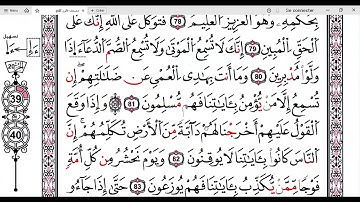 Se connecter
بِحُكْمِهِۦ وَهُوَ ٱلْعَزِيزُ ٱلْعَلِيمُ 78 فَتَوَكَّلْ عَلَى ٱللَّهِ إِنَّكَ عَلَى
ٱلْحَقِّ ٱلْمُبِينِ 79 إِنَّكَ لَا تُسْمِعُ ٱلْمَوْتَىٰ وَلَا تُسْمِعُ ٱلصُّمَّ ٱلدُّعَآءَ ا۪ذَا
وَلَّوْا۟ مُدْبِرِينَ 80 وَمَآ أَنتَ بِهَٰدِى ٱلْعُمْىِ عَن ضَلَٰلَتِهِمْ إِن
تُسْمِعُ إِلَّا مَن يُؤْمِنُ بِـَٔايَٰتِنَا فَهُم مُّسْلِمُونَ 81 وَإِذَا وَقَعَ
ٱلْقَوْلُ عَلَيْهِمْ أَخْرَجْنَا لَهُمْ دَآبَّةً مِّنَ ٱلْأَرْضِ تُكَلِّمُهُمْ إِنَّ
ٱلنَّاسَ كَانُوا۟ بِـَٔايَٰتِنَا لَا يُوقِنُونَ 82 وَيَوْمَ نَحْشُرُ مِن كُلِّ أُمَّةٍ
فَوْجًا مِّمَّن يُكَذِّبُ بِـَٔايَٰتِنَا فَهُمْ يُوزَعُونَ 83 حَتَّىٰٓ إِذَا جَآءُو
تسهيل
39
40